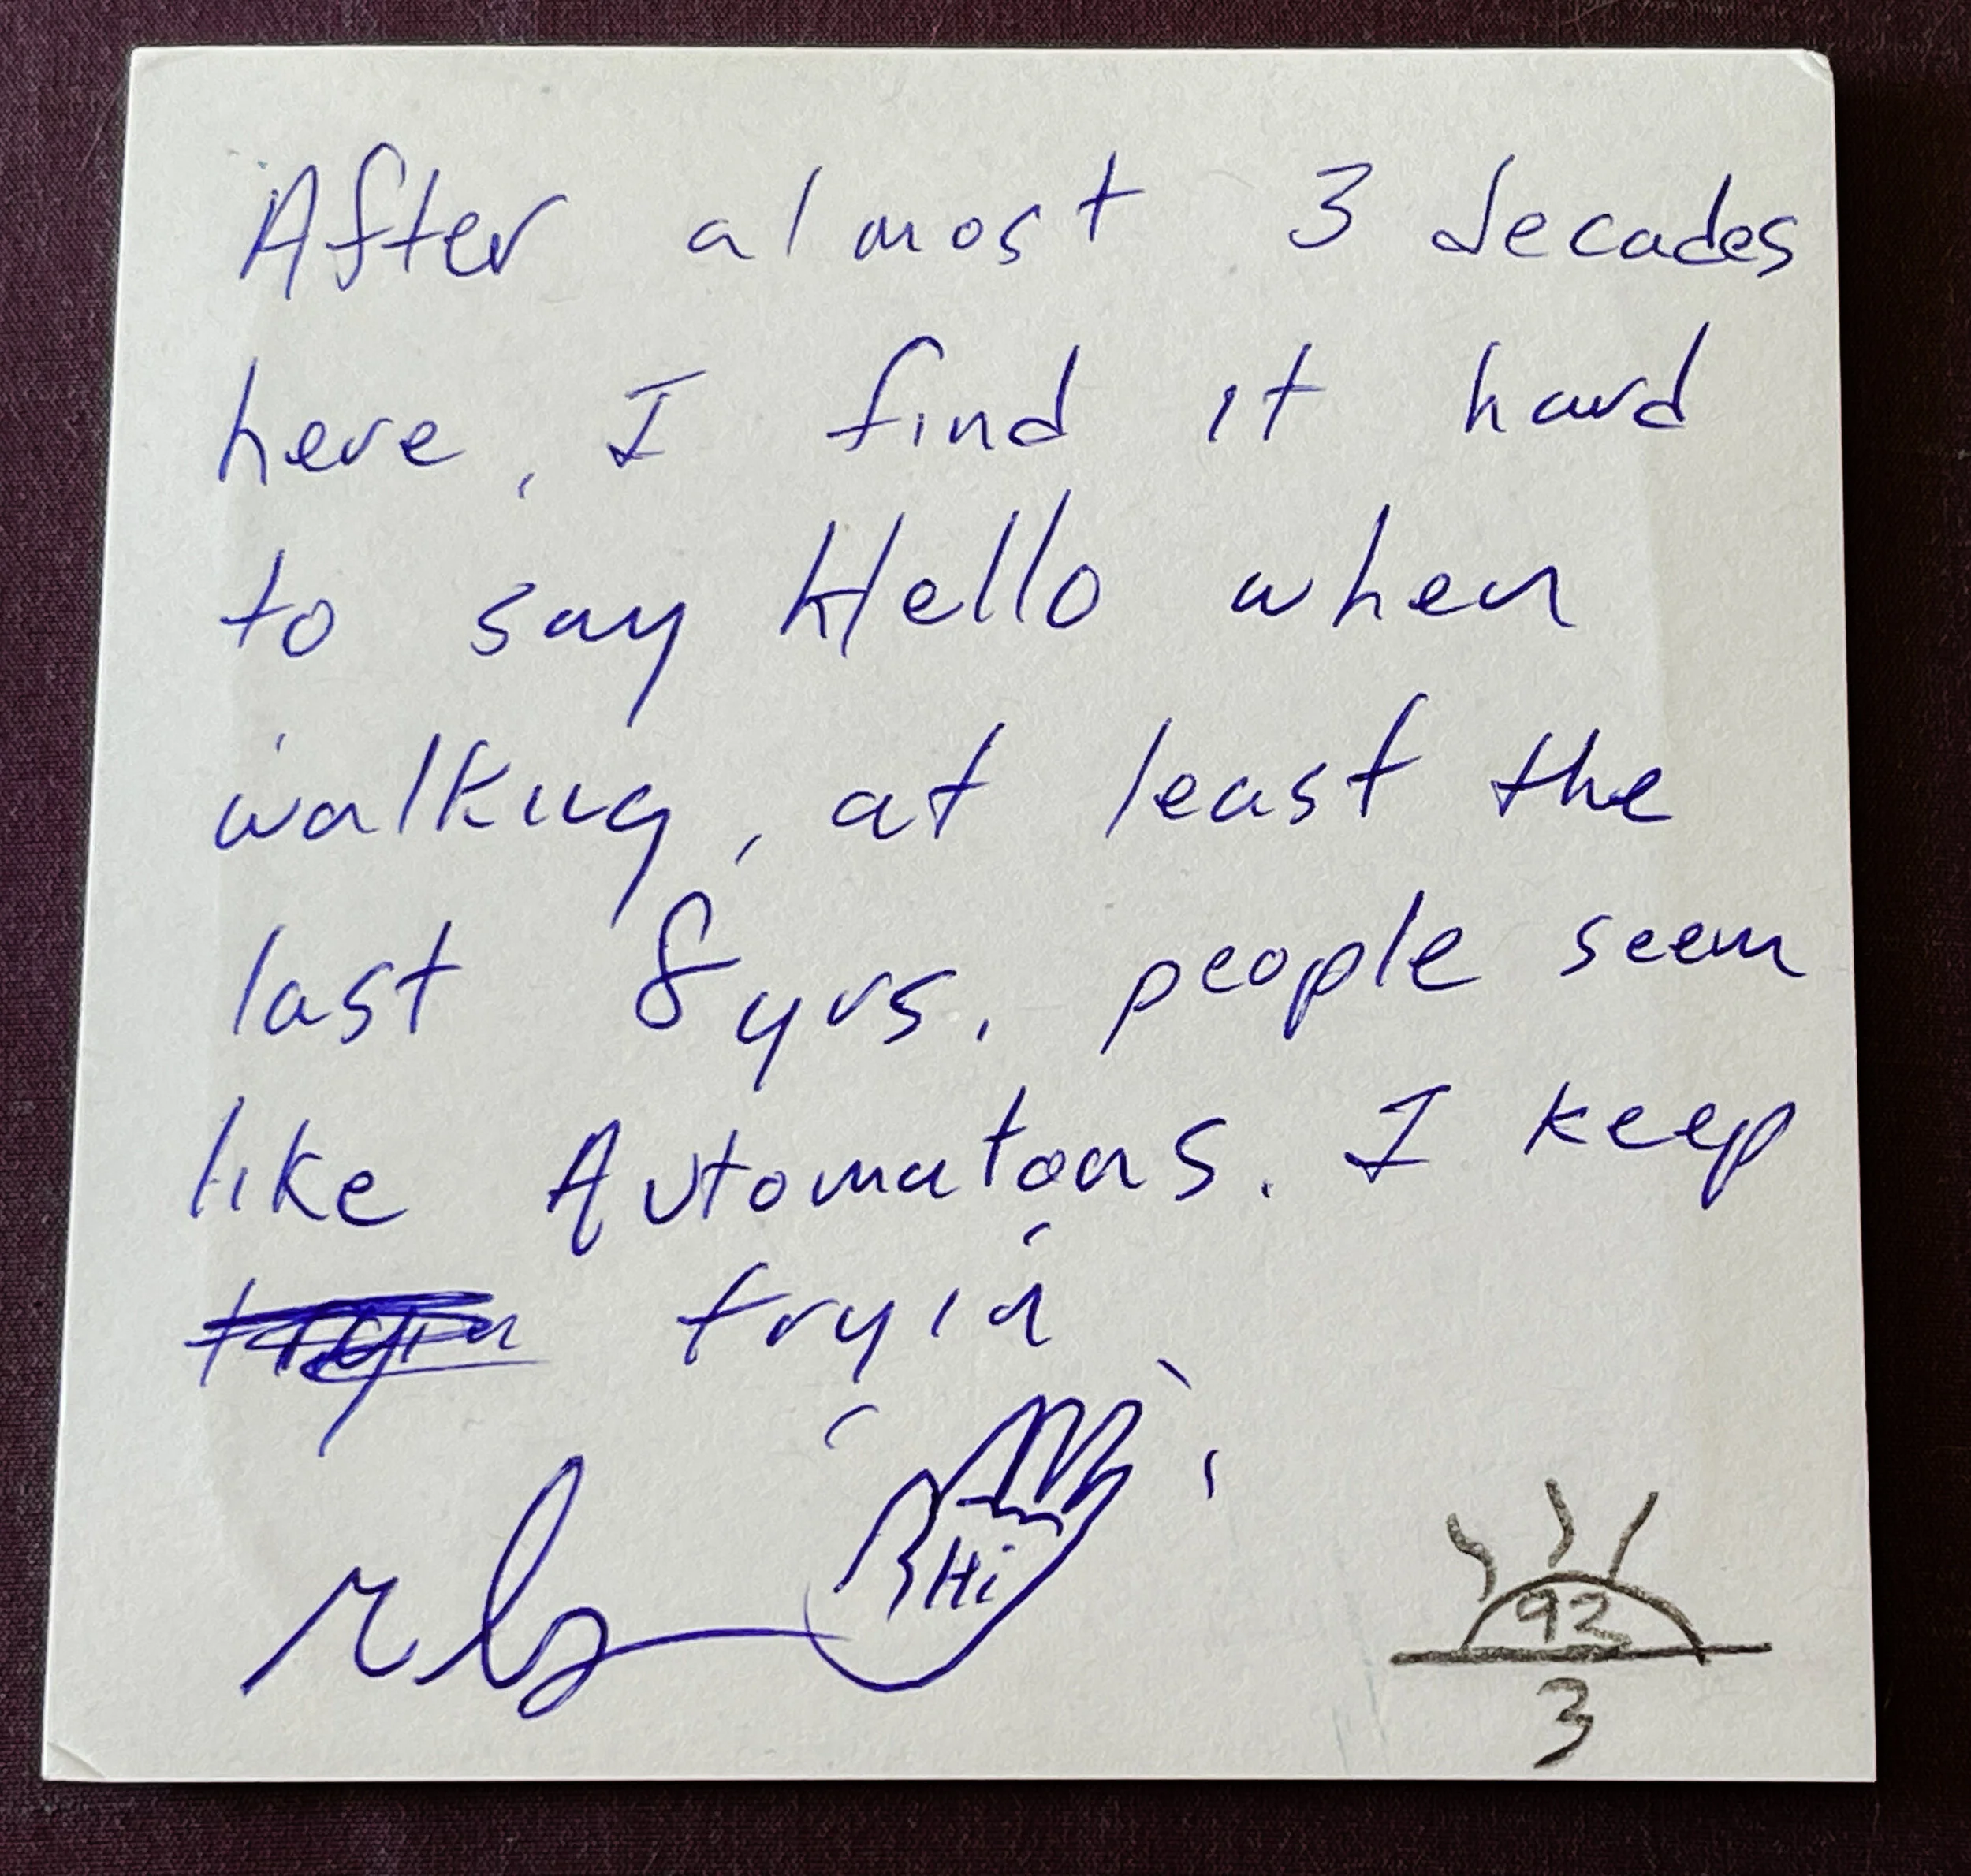 After almost 3 decades
here, I find it hard
to say Hello when
walking, at least the
last 8yrs. people seem
like Automatons. I keep
tryin
Hi
92
3